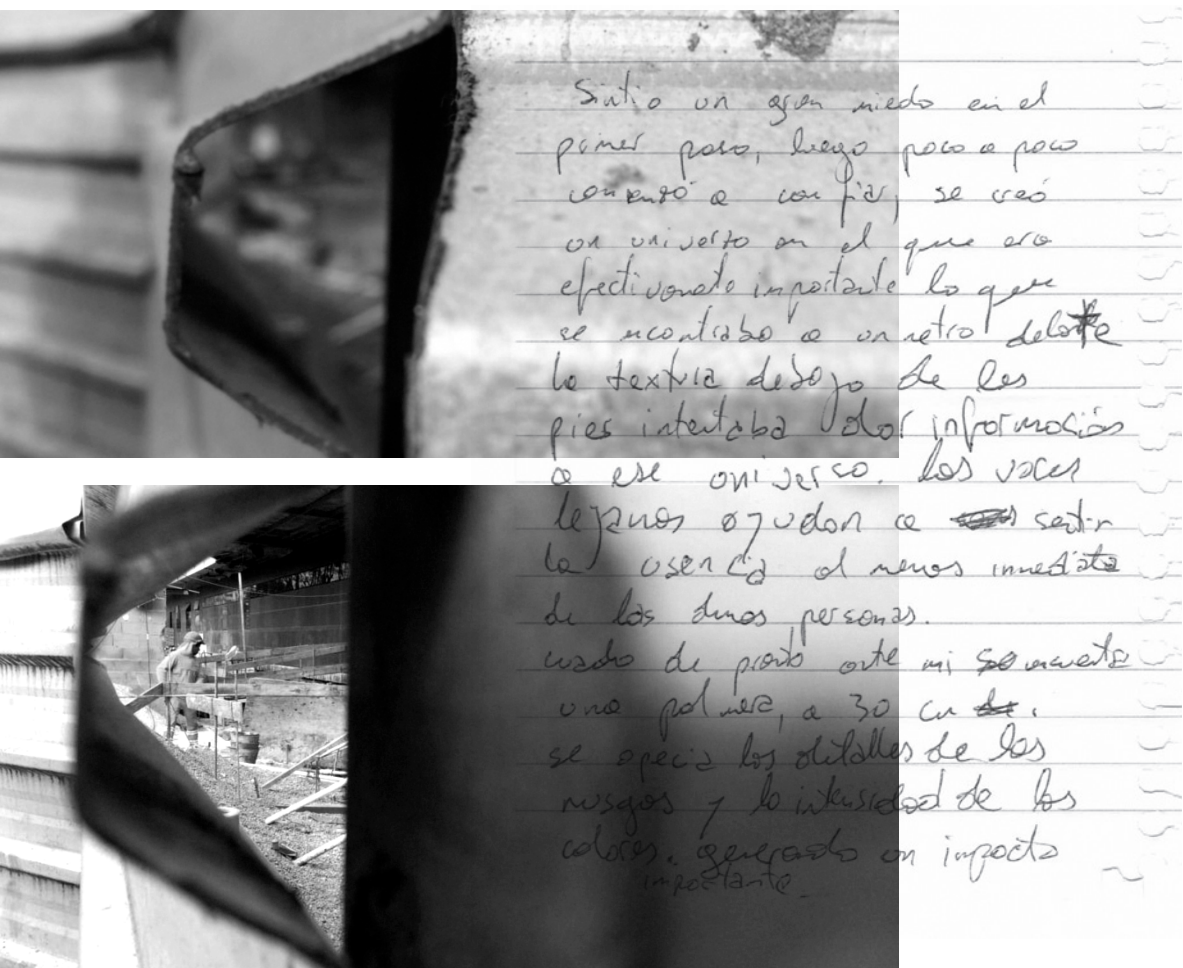 Sintio un gran miedo en el
primer paso, luego poco a poco
comenzó a confiar, se creó
un universo en el que era
efectivamente importante lo que
se encontraba a un metro delante
la textura debajo de los
pies intentaba dar información
a ese universo. las voces
lejanas ayudan a sentir
la usencia al menos inmediata
de las demas personas.
cuado de pronto ante mi encuentra
una palmera, a 30 cm.
se aprecia los detalles de los
musgos y la intensidad de los
colores. generado un impacto
importante